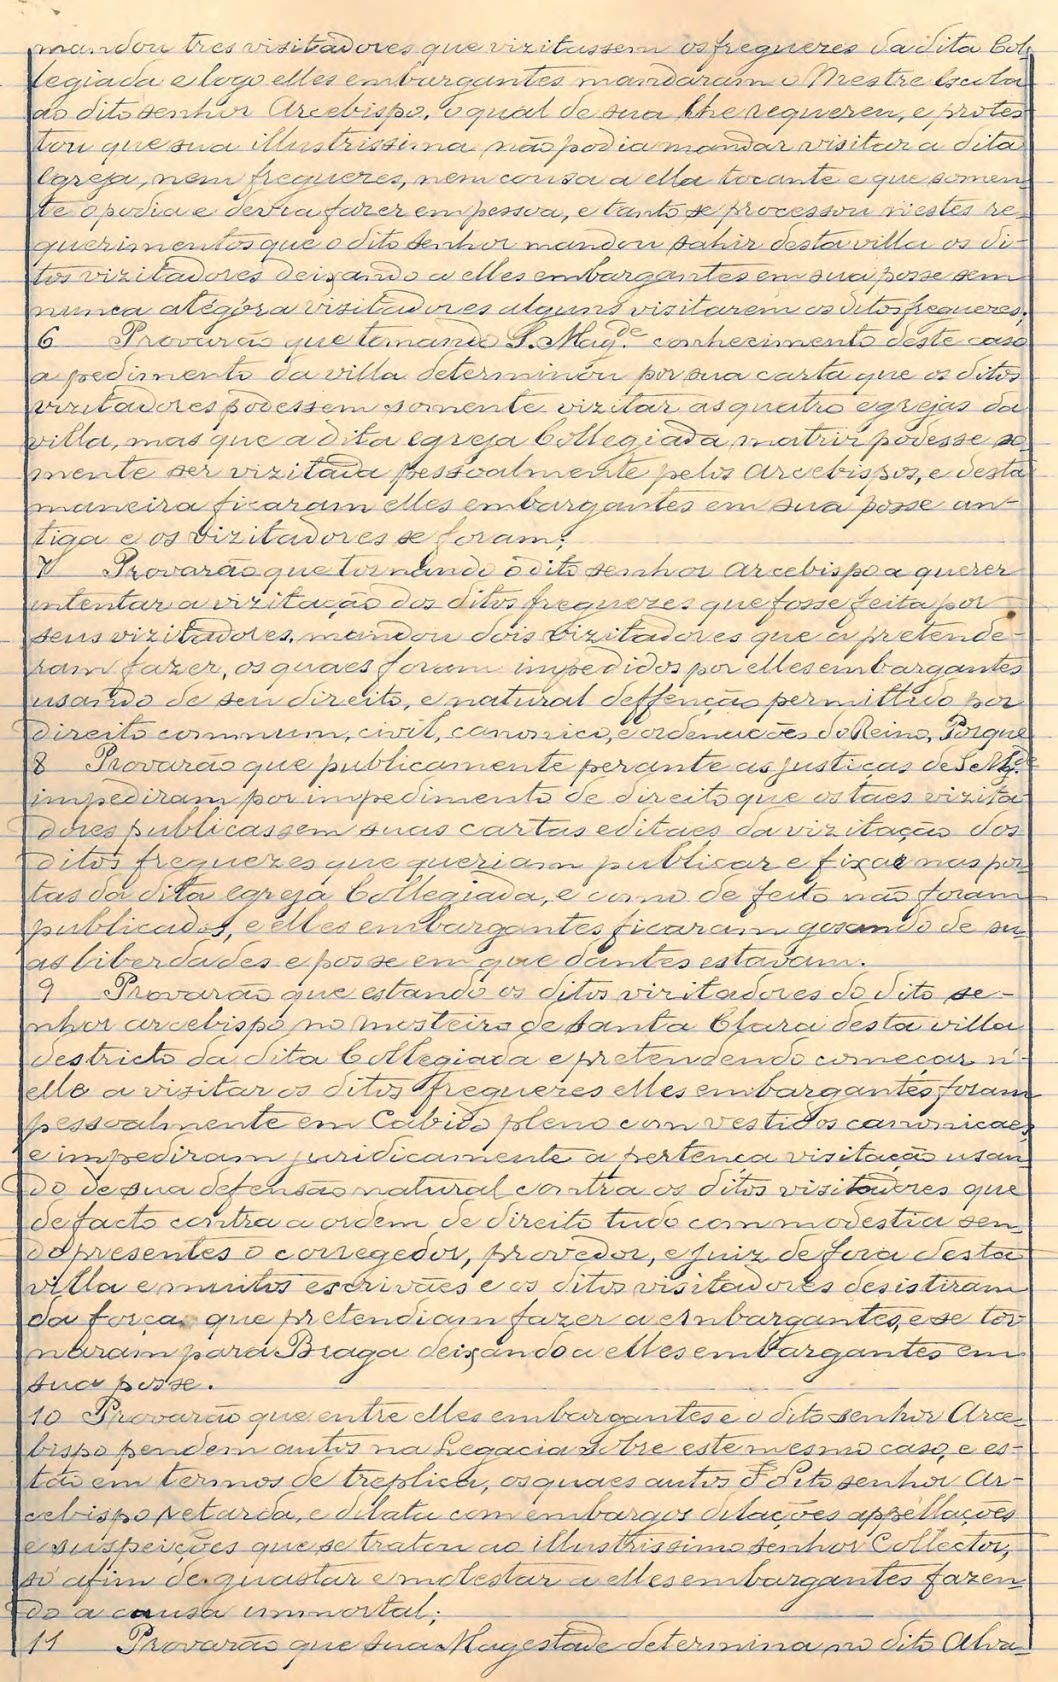 mandou tres visitadores que vizitassem os freguezes da dita Col-
legiada e logo elles embargantes mandaram o Mestre Escola
ao dito senhor Arcebispo, o qual de sua lhe requereu, e protes
tou que sua illustrissima não podia mandar visitar a dita
Egreja, nem freguezes, nem cousa a ella tocante e que somen-
te o podia e devia fazer em pessoa, e tanto se processou n'estes re-
querimentos que o dito senhor mandou sahir desta villa os di-
tos vizitadores deixando a elles embargantes em sua posse sem
nunca atégóra visitadores alguns visitarem os ditos freguezes;
6 Provarão que tomando S. Mag.de conhecimento deste caso
a pedimento da villa determinou por sua carta que os ditos
vizitadores podessem somente vizitar as quatro egrejas da
villa, mas que a dita egreja Collegiada matriz podesse so
mente ser vizitada pessoalmente pelos Arcebispos, e desta
maneira ficaram elles embargantes em sua posse an-
tiga e os vizitadores se foram;
7 Provarão que tornando o dito senhor Arcebispo a querer
intentar a vizitação dos ditos freguezes que fosse feita por
seus vizitadores, mandou dois vizitadores que a pretende-
ram fazer, os quaes foram impedidos por elles embargantes
usando de seu direito, e natural deffenção permittido por
direito commum, civil, canonico, e ordenações do Reino, Porque
8 Provarão que publicamente perante as justiças de S Mg.de
impediram por impedimento de direito que os taes vizita
dores publicassem suas cartas editaes da vizitação dos
ditos freguezes que queriam publicar e fixar nas por
tas da dita egreja Collegiada, e como de feito não foram
publicados, e elles embargantes ficaram gosando de su-
as liberdades e posse em que dantes estavam.
9 Provarão que estando os ditos vizitadores do dito se-
nhor arcebispo no mosteiro de Santa Clara desta villa
destricto da dita Collegiada e pretendendo começar n'-
elle a visitar os ditos freguezes elles embargantes foram
pessoalmente em Cabido pleno com vestidos canonicaes
e impediram juridicamente a pertença visitação usan-
do de sua defensão natural contra os ditos visitadores que
de facto contra a ordem de direito tudo com modestia sen-
do presentes o corregedor, provedor, e Juiz de fora desta
villa e muitos escrivães e os ditos visitadores desistiram
da força que pretendiam fazer a embargantes, e se tor
naram para Braga deixando a elles embargantes em
sua posse.
10 Provarão que entre elles embargantes e o dito senhor Arce-
bispo pendem autos na Legacia sobre este mesmo caso, e es-
tão em termos de treplica, os quaes autos o dito senhor Ar-
cebispo retarda, e dilata com embargos dilações appellações
e suspeições que se tratou ao illustrissimo senhor Collector,
só afim de guastar e molestar a elles embargantes fazen-
do a causa immortal;
11 Provarão que sua Magestade determina no dito Alva-